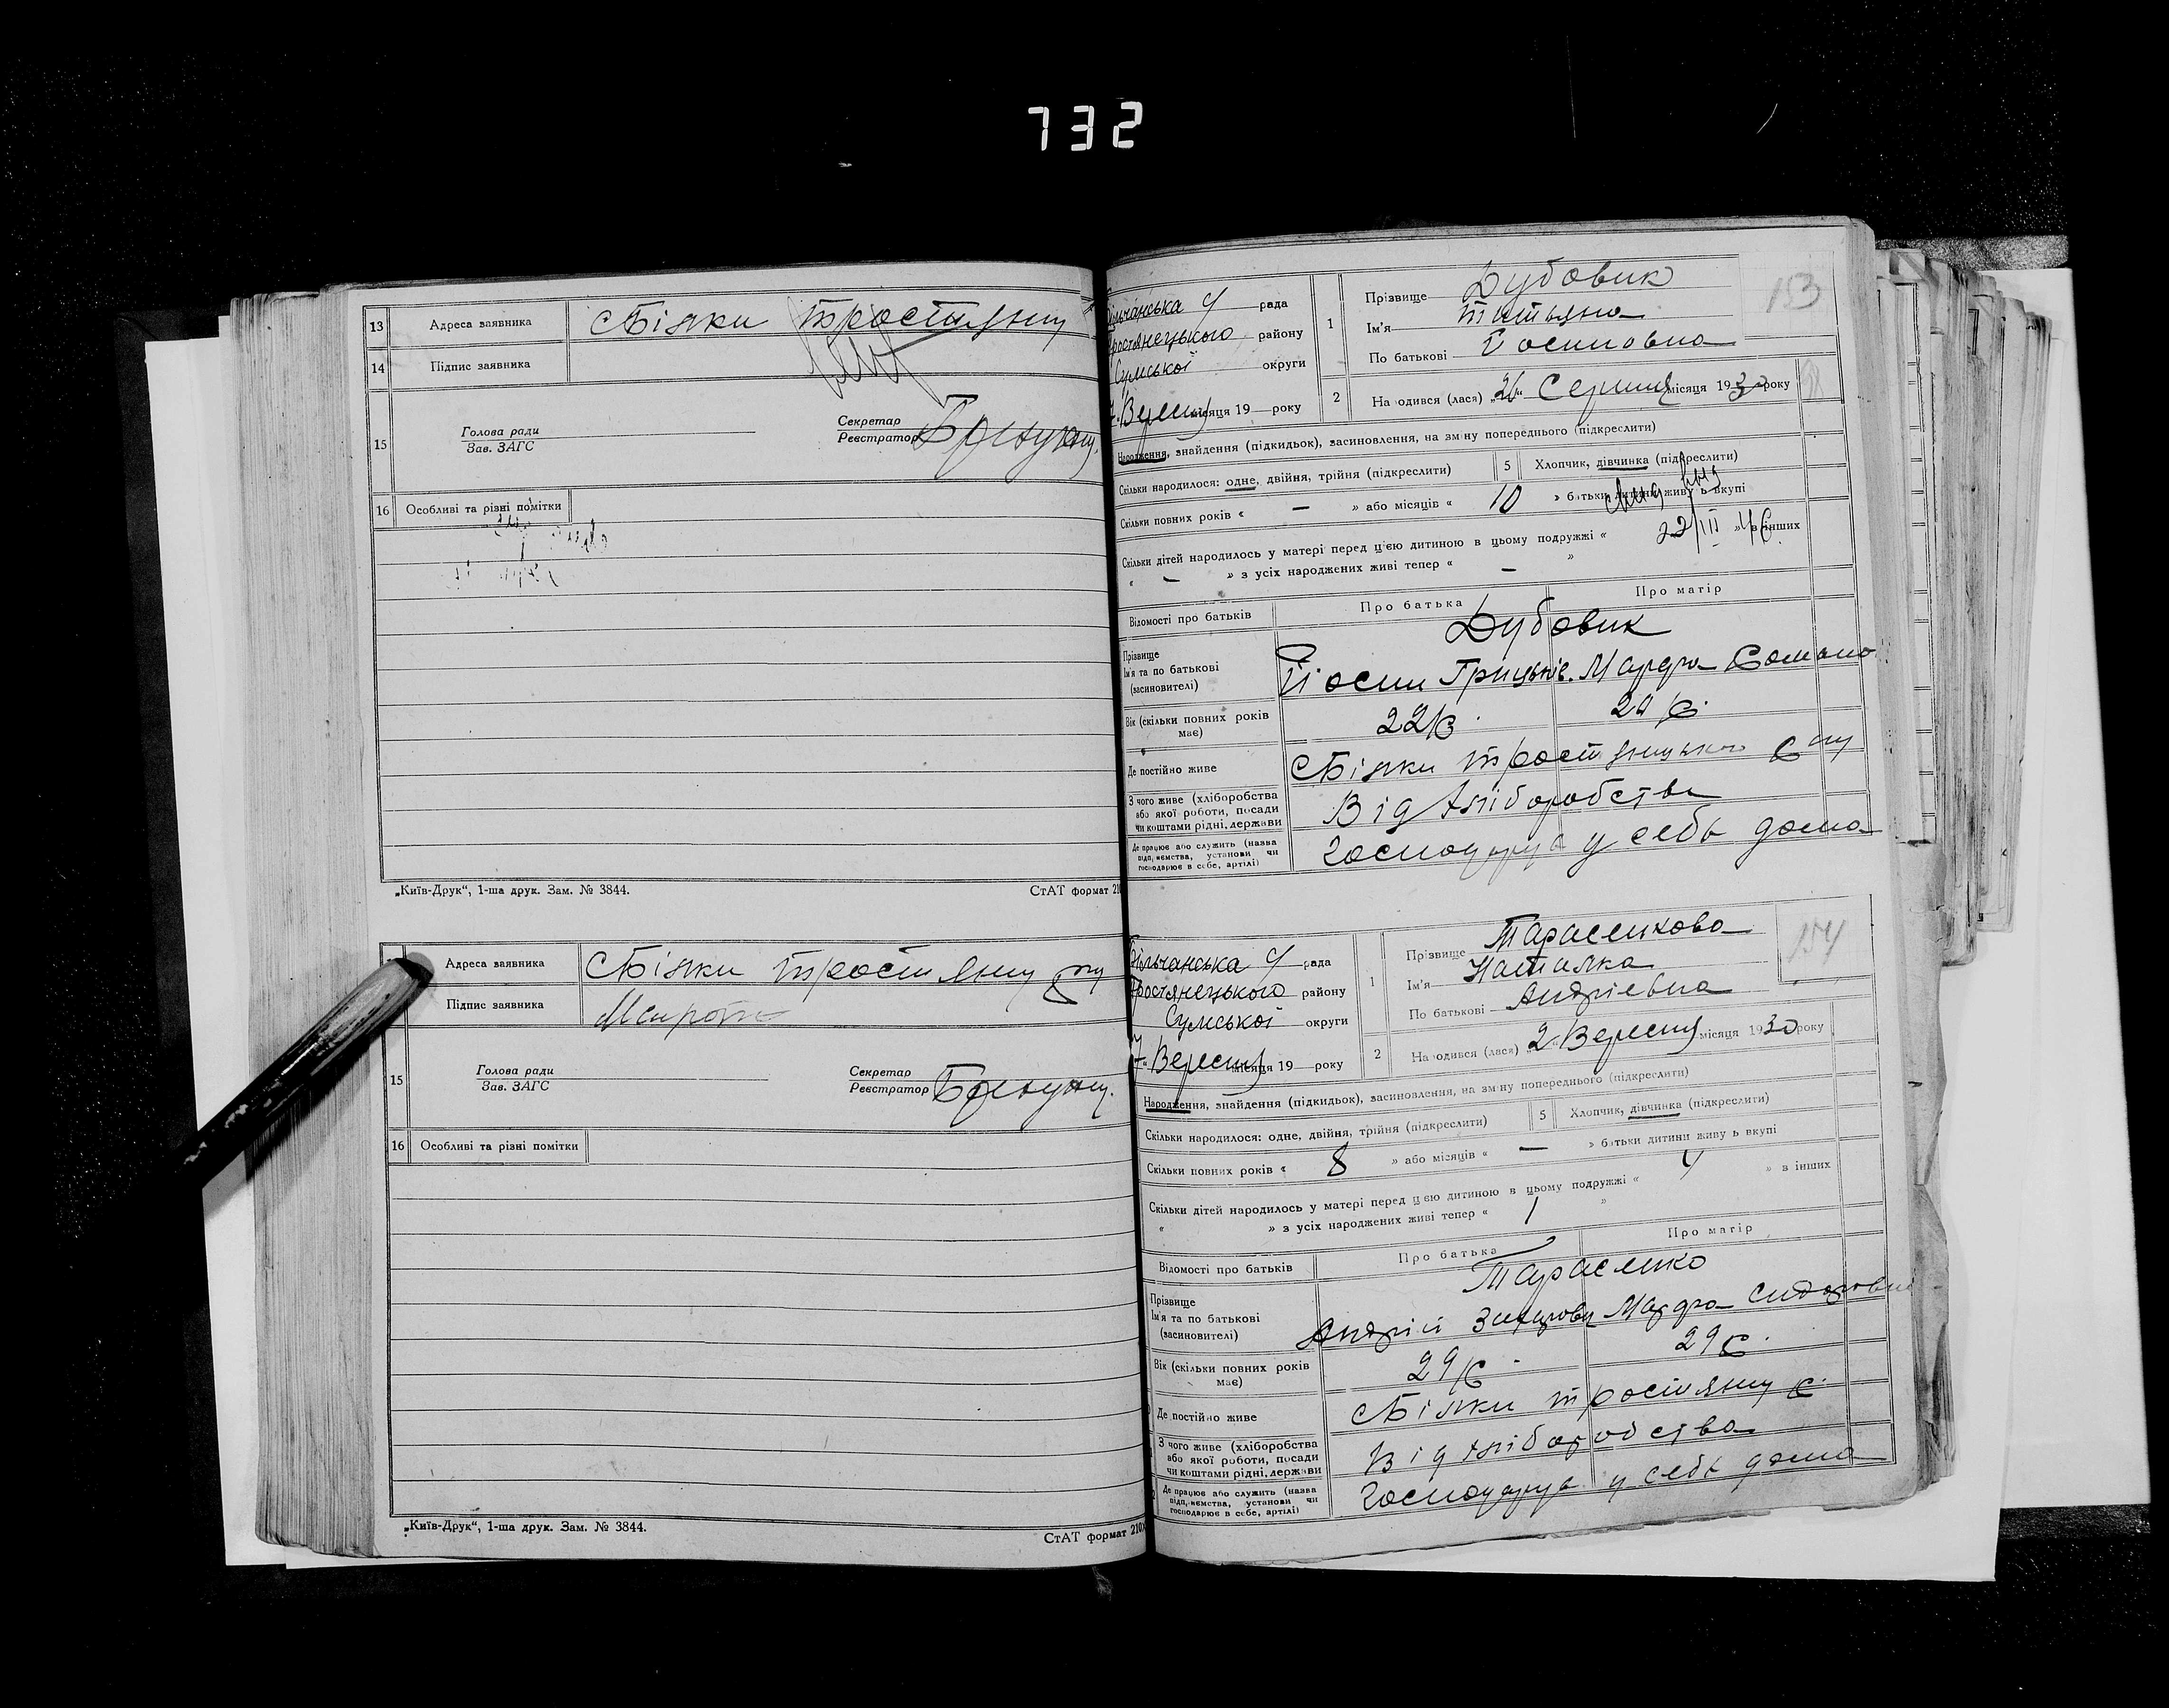 732
13 Адреса заявника с Білки Тростянец
14 Підпис заявника
15 Голова ради
Зав. ЗАГС
Секретар
Реєстратор
16 Особливі та різні помітки
„Київ-Друк“, 1-ша друк. Зам. № 3844.
СтАТ формат 210
Адреса заявника с Білки Тростянец
Підпис заявника
15 Голова ради
Зав. ЗАГС
Секретар
Реєстратор
16 Особливі та різні помітки
„Київ-Друк“, 1-ша друк. Зам. № 3844.
СтАТ формат 210
153
рада
ростянецького району
Сумської округи
7 Вересня місяця 19 року
1 Прізвище Дубовик
Ім'я Татьяна
По батькові Йосиповна
2 На одився (лася) „ “ Серпня місяця 1930 року
Народження, знайдення (підкидьок), засиновлення, на зміну попереднього (підкреслити)
Скільки народилося: одне, двійня, трійня (підкреслити)
5 Хлопчик, дівчинка (підкреслити)
Скільки повних років « — » або місяців « 10 » батьки дитини живу ь вкупі
22/III 46
Скільки дітей народилось у матері перед цією дитиною в цьому подружжі « » в інших
« — » з усіх народжених живі тепер « — »
Відомості про батьків Про батька Про матір
Прізвище
Ім'я та по батькові
(засиновителі)
Дубовик
Йосип Грицьків. Марфа
Вік (скільки повних років має) 22 р.
Де постійно живе с Білки Тростянецького
З чого живе (хліборобства або якої роботи, посади чи коштами рідні, держави Від хліборобства
Де працює або служить (назва підприємства, установи чи господарює в себе, артілі) Господарує у себе дома
154
рада
ростянецького району
Сумської округи
7 Вересня місяця 19 року
1 Прізвище Тарасенкова
Ім'я Наталка
По батькові Андріевна
2 На одився (лася) „2“ Вересня місяця 1930 року
Народження, знайдення (підкидьок), засиновлення, на зміну попереднього (підкреслити)
Скільки народилося: одне, двійня, трійня (підкреслити)
5 Хлопчик, дівчинка (підкреслити)
Скільки повних років « 8 » або місяців « — » батьки дитини живу ь вкупі
Скільки дітей народилось у матері перед цією дитиною в цьому подружжі « 4 » в інших
« » з усіх народжених живі тепер « 1 »
Відомості про батьків Про батька Про матір
Прізвище
Ім'я та по батькові
(засиновителі)
Тарасенко
Андрій Марфа Сидоровна
Вік (скільки повних років має) 29 р. 29 р.
Де постійно живе с Білки Тростянец р.
З чого живе (хліборобства або якої роботи, посади чи коштами рідні, держави Від хліборобства
Де працює або служить (назва підприємства, установи чи господарює в себе, артілі) Господарує у себе дома